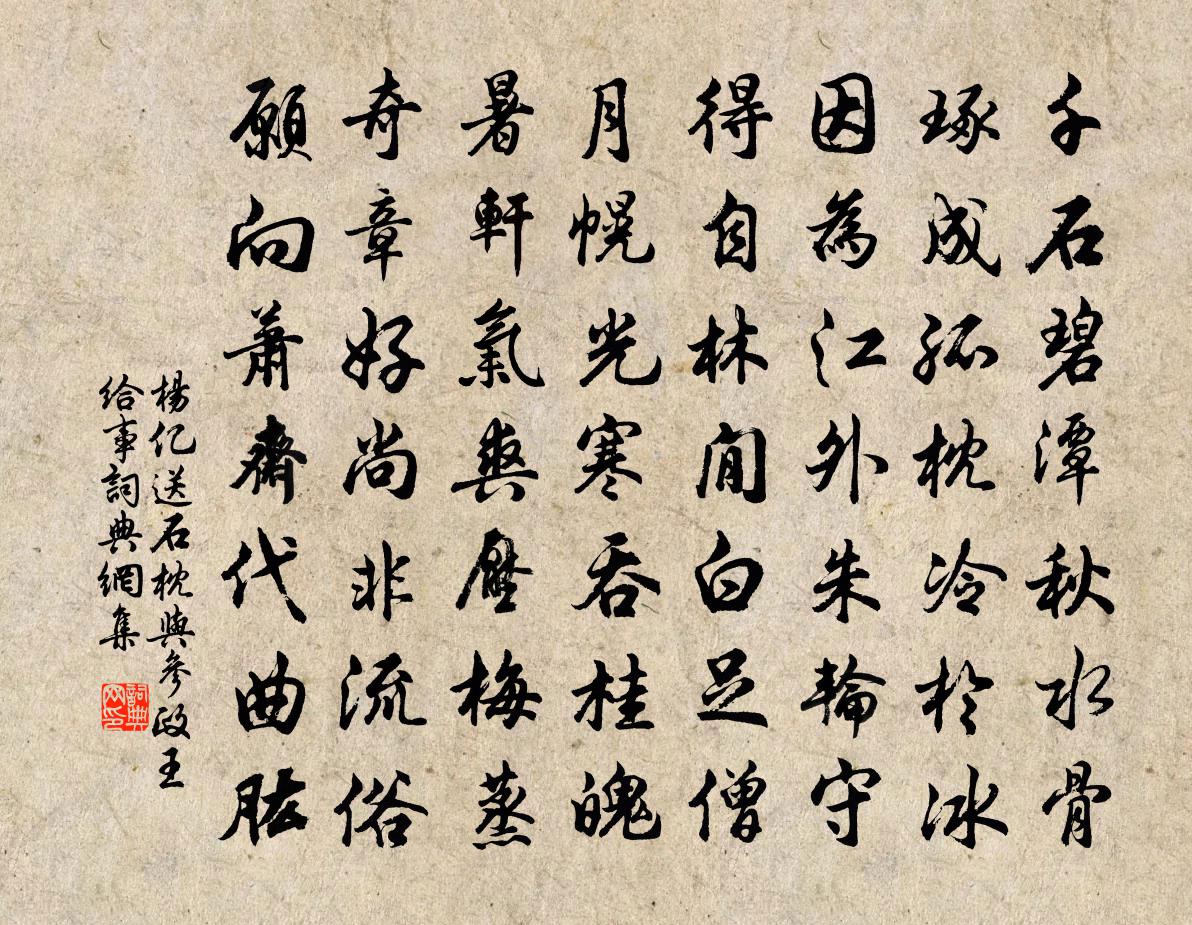 千石碧潭秋水骨
琢成孤枕冷於冰
因為江外朱輪守
得自林間白足僧
月幌光寒吞桂魄
暑軒氣爽壓梅蒸
奇章好尚非流俗
願向蕭齋代曲肱
楊亿送石枕與參政王
給事詞典網集
詞典网印